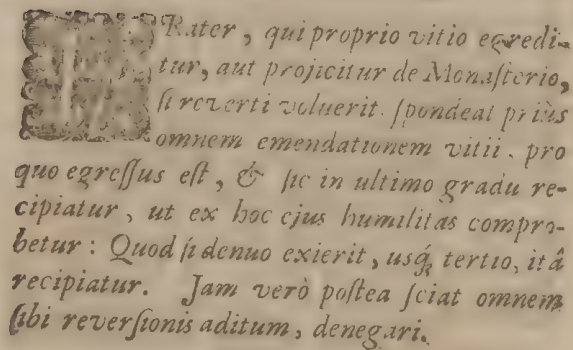 FRater, qui proprio vitio egredi-
tur, aut projicitur de Monaſterio,
ſi reverti voluerit. ſpondeat priùs
omnem emendationem vitii. pro
quo egreſſus eſt, & ſic in ultimo gradu re-
cipiatur, ut ex hoc ejus humilitas compro-
betur: Quod ſi denuo exierit, usq́; tertio, itâ
recipiatur. Jam verò poſtea ſciat omnem
ſibi reverſionis aditum, denegari.